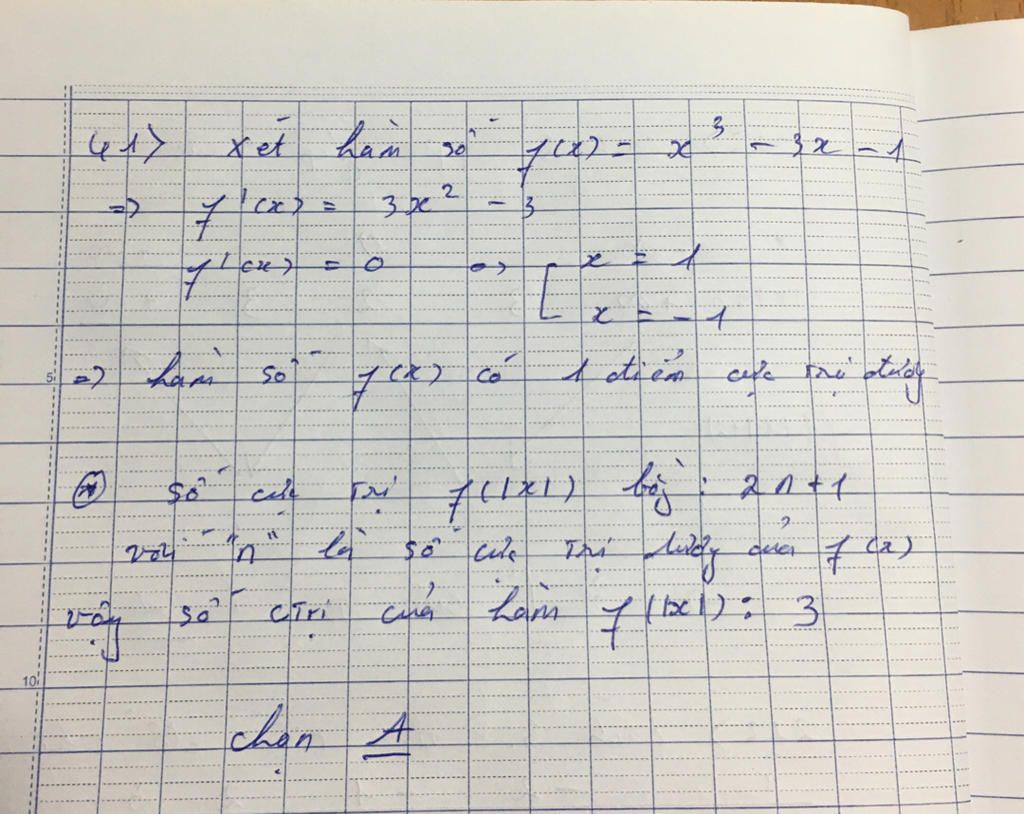 41> Xét hàm số f(x) = x³ - 3x - 1
=> f'(x) = 3x² - 3
f'(x) = 0 => [ x = 1
x = -1
5 => hàm số f(x) có 1 điểm cực trị dương
⊛ Số cực trị f(|x|) bằng: 2n+1
với "n" là số cực trị dương của f(x)
vậy số ctrị của hàm f(|x|): 3
10
chọn A